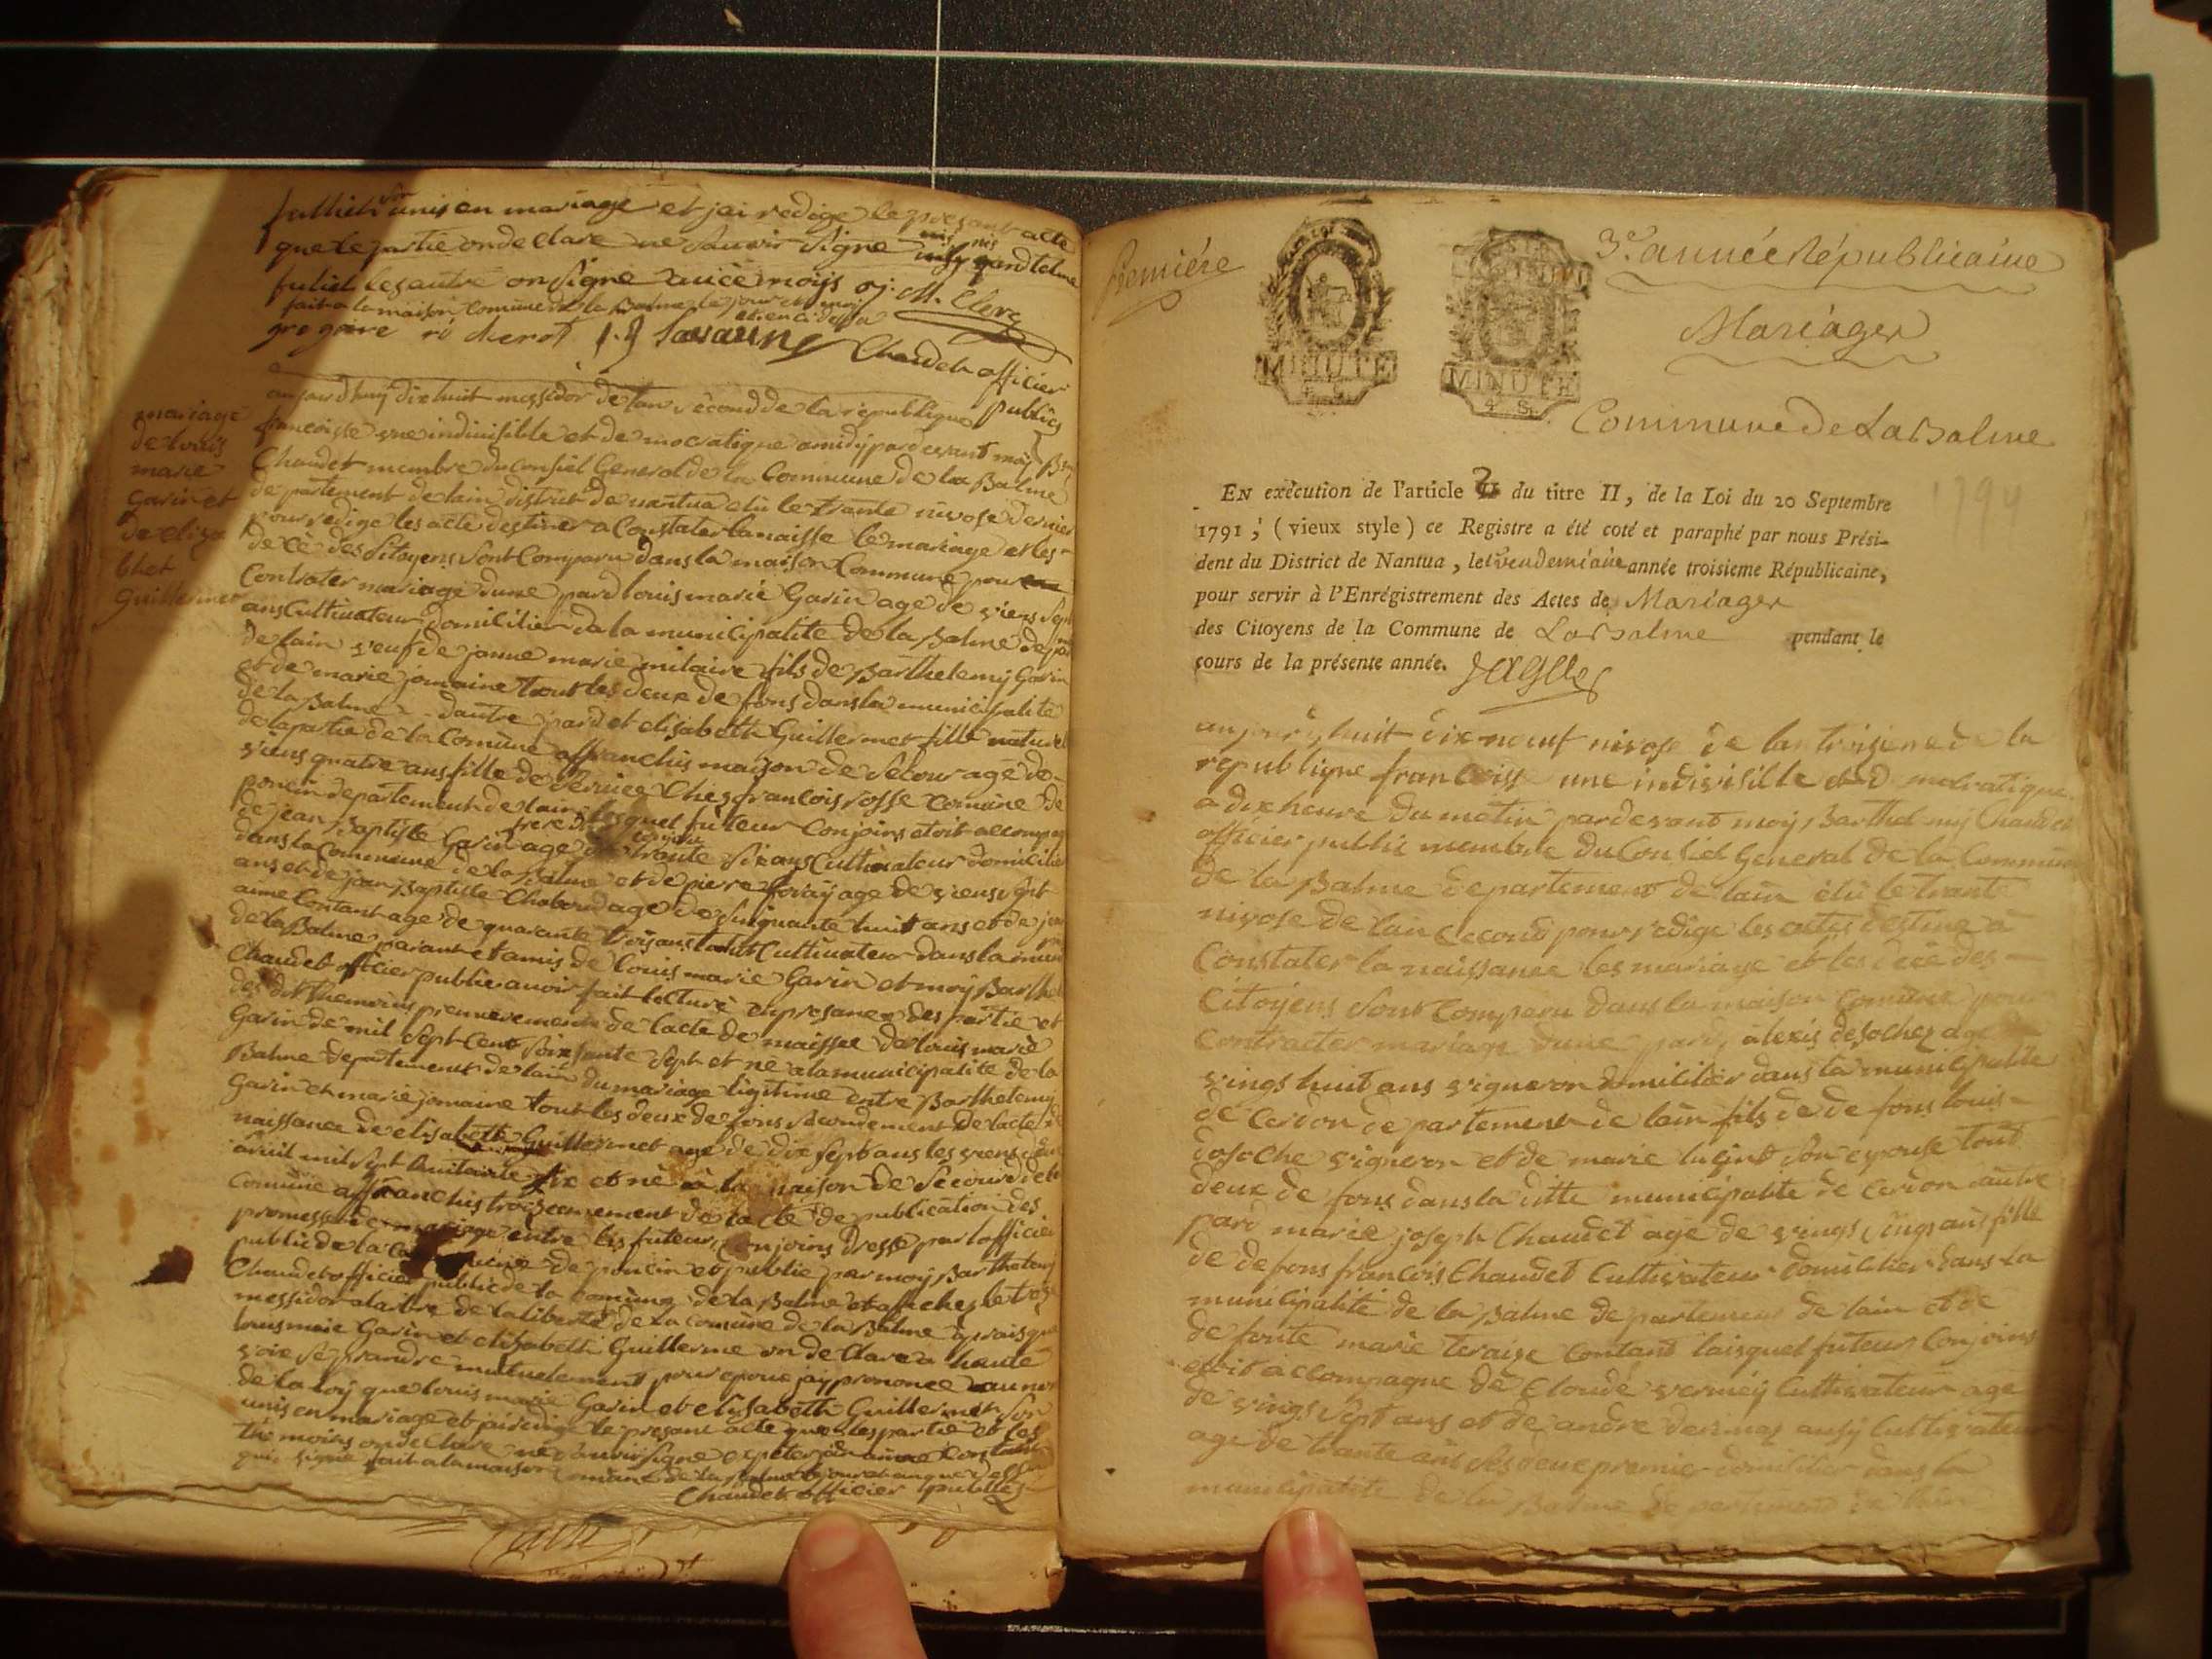 unis en mariage et jai redige le presant acte
que le partie on declare ne savoir signe
les autre on signe avec moys M. Clerc
fait a la maison Comune de la Balme le jour et
gregoire
Chaudet officier
public
mariage
de louis
marie
Garin et
de eliza
bhet
Guillermet
aujourdhuy dix huit messidor de lan second de la republique
francoisse une indiuisible et de mocratique a midy pardevant moy
Chaudet membre du Consiel General de la Commune de la Balme
departement de lain district de nantua elu le trante nivose dernier
pour redige les acte destiner a Constater la naisse le mariage et les
de ce des Sitoyens sont Comparu dans la maison Commune pour
Contrater mariage dune pard louis marie Garin age de viens sept
ans Cultivateur domicilier da la municipalite de la Balme
de lain veuf de janne marie militaire fils de Barthelemy Garin
et de marie jomaine tout les deux de fons dans la municipalite
de la Balme dautre pard et elisabeth Guillermet fille naturel
de la partie de la Comune affranchis maison de Secour age de
viens quatre ans fille de Chez francois rosse Comune de
poncin departement de lain lesquel futeur Conjoins etoit accompag
de jean Baptiste Garin age de trante six ans Cultivateur domicilie
dans la Commune de la Balme et de piere age de viens sept
ans et de jean Baptiste Chaboud age de sinquante huit ans et de jean
aime Contant age de quarante trois ans tout Cultivateur dans la
de la Balme parant et amis de louis marie Garin et moy Barthel
Chaudet officier public avoir fait lecture en presance des partie et
des dit themoins premierement de lacte de naissee de louis marie
Garin de mil sept cent soixsante sept et ne a la municipalite de la
Balme departement de lain du mariage legitime entre Barthelemy
Garin et marie jomaine tout les deux de fons secondement de lacte de
naissance de elisabeth Guillermet age de dix sept ans les viens
avril mil sept et ne a la maison de Secour de la
Comune affranchis troisiemement de lacte de publication des
promesse de mariage entre les futeur conjoins dresse par lofficier
public de la Comune de poncin et publie par moy Barthelemy
Chaudet officier public de la Comune de la Balme et affiche le
messidor a larbre de la liberte de la Comune de la Balme
louis marie Garin et elizabeth Guillerme on de Clare a haute
voix se prandre mutuelement pour epoux jay prononce au nom
de la loy que louis marie Garin et elisabeth Guillermet son
unis en mariage et jai redige le presant acte que les partie et les
themoins on de Clare ne savoir signe jean aime Contant
qui signe fait a la maison Comune de la Balme
Chaudet officier public
Première
MINUTE
MINUTE
4 S.
3.e année Républicaine
Mariages
Commune de La Balme
1794
EN exécution de l'article 2 du titre II, de la Loi du 20 Septembre
1791, (vieux style) ce Registre a été coté et paraphé par nous Prési-
dent du District de Nantua, le vendemiaire année troisieme Républicaine,
pour servir à l'Enrégistrement des Actes de Mariages
des Citoyens de la Commune de La Balme pendant le
cours de la présente année.
dix neuf nivose de lan troisieme de la
republique francoisse une indivisible et de mocratique
a dix heure du matin pardevant moy, Barthelemy Chaudet
officier public membre du Consiel General de la Commune
de la Balme departement de lain elu le trante
nivose de lan second pour redige les actes destine a
Constater la naissance les mariage et les dece des
Citoyens sont Comparu dans la maison Comune pour
Contracter mariage dune pard, alexis desoches age
vings huit ans vigneron domicilier dans la municipalite
de Cerdon departement de lain fils de de fons louis
dosoche vigneron et de marie son epouse tout
deux de fons dans la ditte municipalite de Cerdon autre
pard marie joseph Chaudet age de vings sings ans fille
de de fons francois Chaudet Cultivateur domicilier dans la
municipalité de la Balme departement de lain et de
de fonte marie teraise Contant laisquel futeur Conjoins
etoit accompagne de Claude verney Cultivateur age
de vings sept ans et de andre ausy Cultivateur
age de trante ans les deux premier domicilier dans la
municipalite de la Balme departement de lain